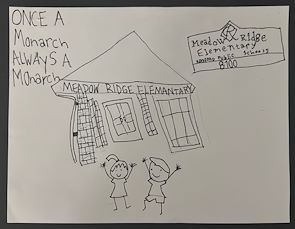 ONCE A
Monarch
ALWAYS A
Monarch
MEADOW RIDGE ELEMANTARY
Meadow Ridge
Elementary
Public Schools
8700